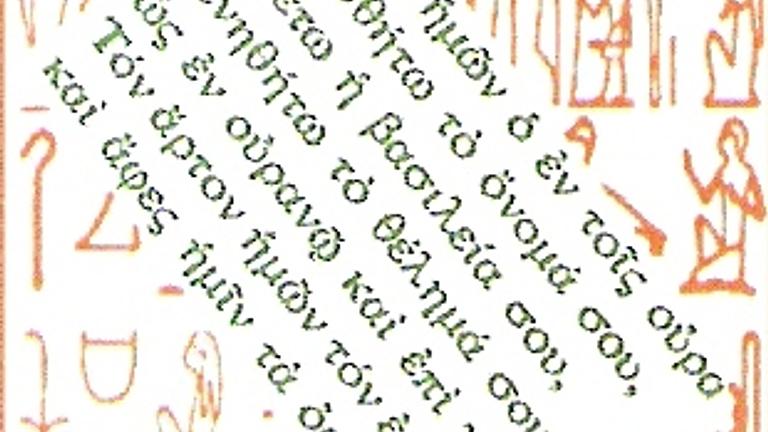 ἡμῶν ὁ ἐν τοῖς οὐρα
θήτω τὸ ὄνομά σου,
έτω ἡ βασιλεία σου,
ενηθήτω τὸ θέλημά σου
ὡς ἐν οὐρανῷ καὶ ἐπὶ
Τόν ἄρτον ἡμῶν τόν ἐ
καὶ ἄφες ἡμῖν τὰ ὀφ